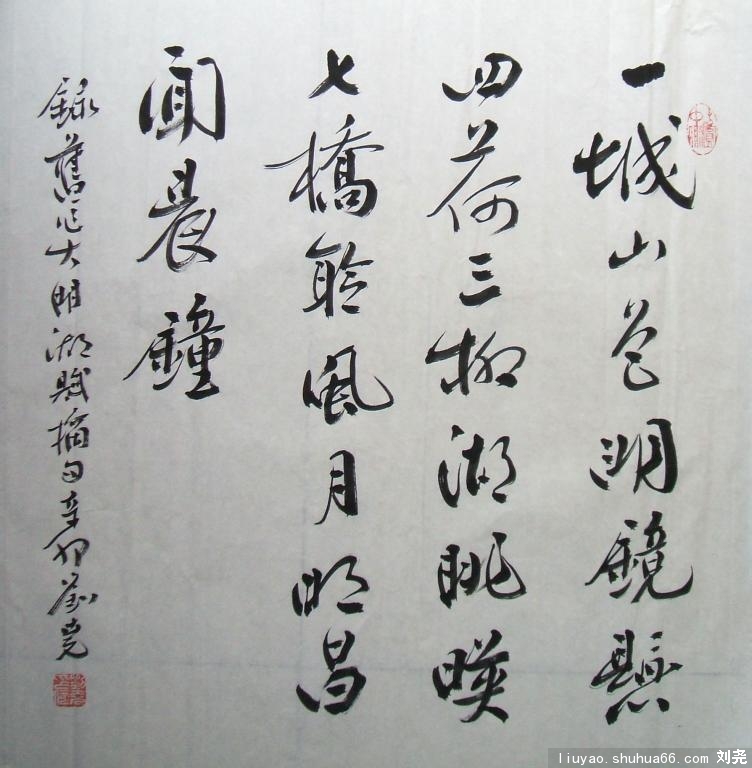 一城山色明鏡懸
四荷三柳湖眺暎
七橋聆風月明昌
聞晨鐘
録舊作大明湖賦摘句辛卯劉堯
liuyao.shuhua66.com 刘尧